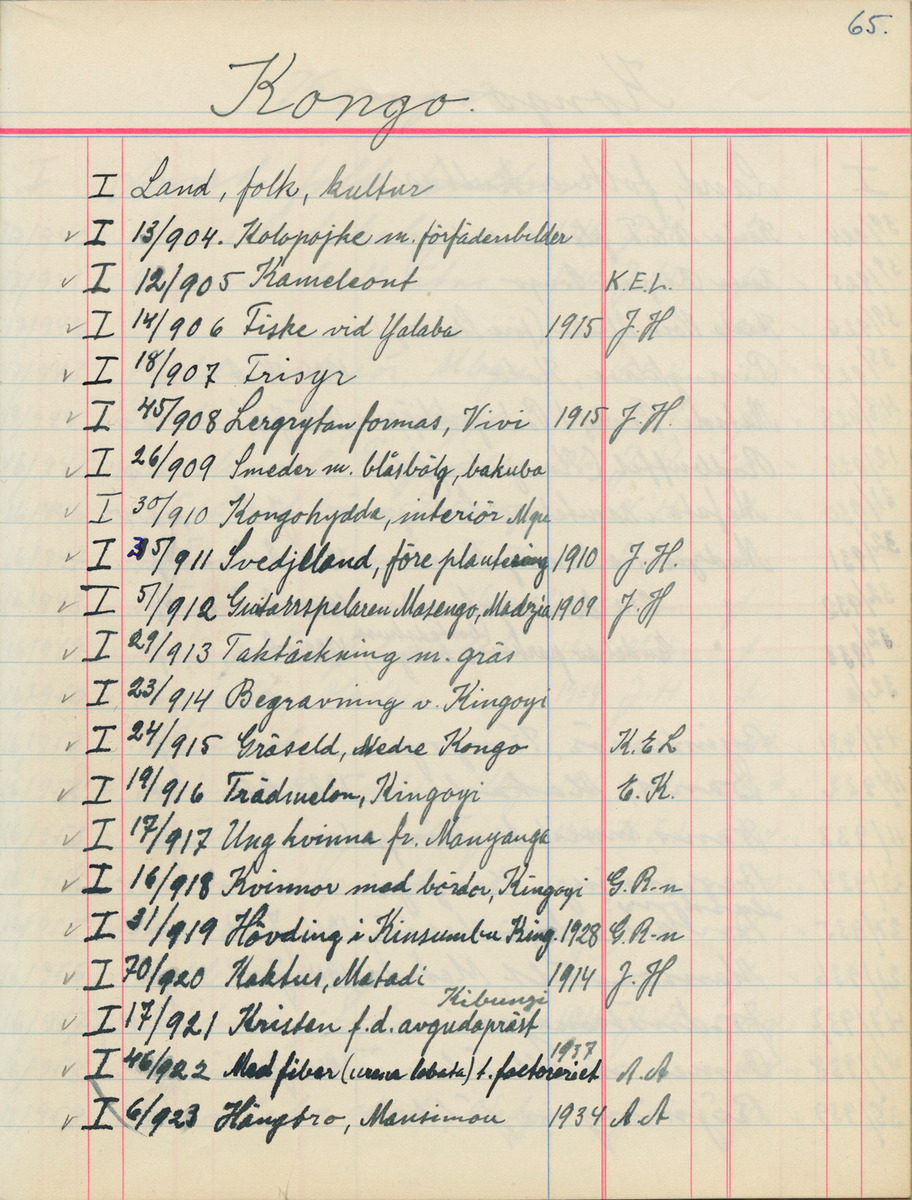 65.
Kongo.
I Land, folk, kultur
✓ I 13/904. Kolopojke m. förfädersbilder
✓ I 12/905 Kameleont K.E.L.
✓ I 14/906 Fiske vid Yalaba 1915 J.H
✓ I 18/907 Frisyr
✓ I 45/908 Lergrytan formas, Vivi 1915 J.H.
✓ I 26/909 Smeder m. blåsbälg, bakuba
✓ I 30/910 Kongohydda, interiör
✓ I 35/911 Svedjeland, före plantering 1910 J.H.
✓ I 5/912 Guitarrspelaren Masengo, Madzia 1909 J.H
✓ I 29/913 Taktäckning m. gräs
✓ I 23/914 Begravning v. Kingoyi
✓ I 24/915 Gräseld, Nedre Kongo K.E L
✓ I 19/916 Trädmelon, Kingoyi E.K.
✓ I 17/917 Ung kvinna fr. Manyanga
✓ I 16/918 Kvinnor med bördor, Kingoyi G.R-n
✓ I 31/919 Hövding i Kinsumbu King. 1928 G.R-n
✓ I 70/920 Kaktus, Matadi 1914 J.H
Kibungi
✓ I 17/921 Kristen f.d. avgudapräst
1937
✓ I 46/922 Med fiber (urena lobata) t. faktoriet A.A
✓ I 6/923 Hängbro, Mansimou 1934 A A